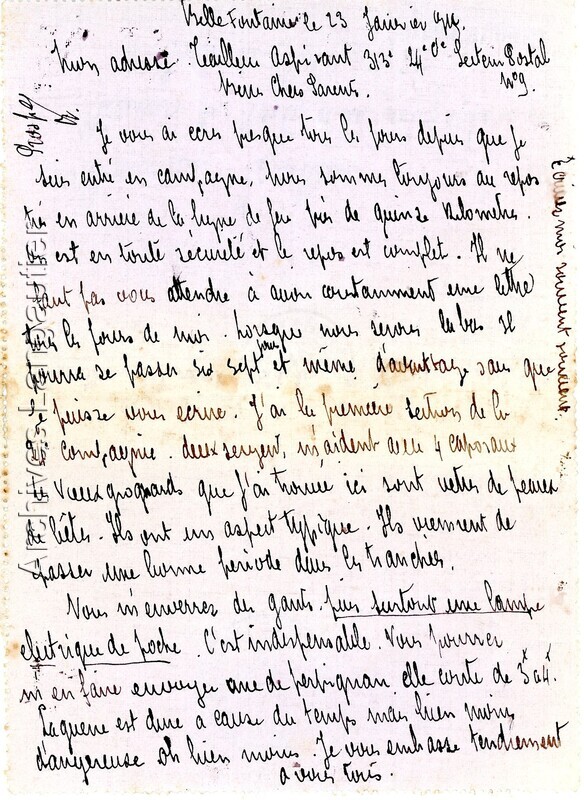 Belle Fontaine le 23 Janvier 1915
Mon adresse. Teilleur Aspirant 313e 24e Cie Secteur Postal
No 9.
Mes Chers Parents.
Je vous ai ecris presque tous les jours depuis que je
suis entré en campagne, nous sommes toujours au repos
en arriere de la ligne de feu près de quinze kilometres.
est en toute sécurité et le repos est complet. Il ne
faut pas vous attendre à avoir constamment une lettre
tous les jours de moi. Lorsque nous serons labas il
pourra se passer six sept jours et même d'avantage sans que
puisse vous ecrire. J'ai la première section de la
Compagnie. deux sergent, m'aident avec 4 caporaux
Vieux grognards que j'ai trouvé ici sont vetus de peaux
de bêtes. Ils ont un aspect typique. Ils viennent de
passer une bonne période dans les tranchées.
Vous m'enverrez des gants, puis surtout une lampe
electrique de poche. C'est indispensable. Vous pourrez
m'en faire envoyer une de perpignan elle coute de 3f a 4f.
La guerre est dure a cause du temps mais bien moins
dangereuse oh bien moins. Je vous embrasse tendrement
a vous tous.
Ecrivez moi souvent souvent.
Archives_Lamanautier